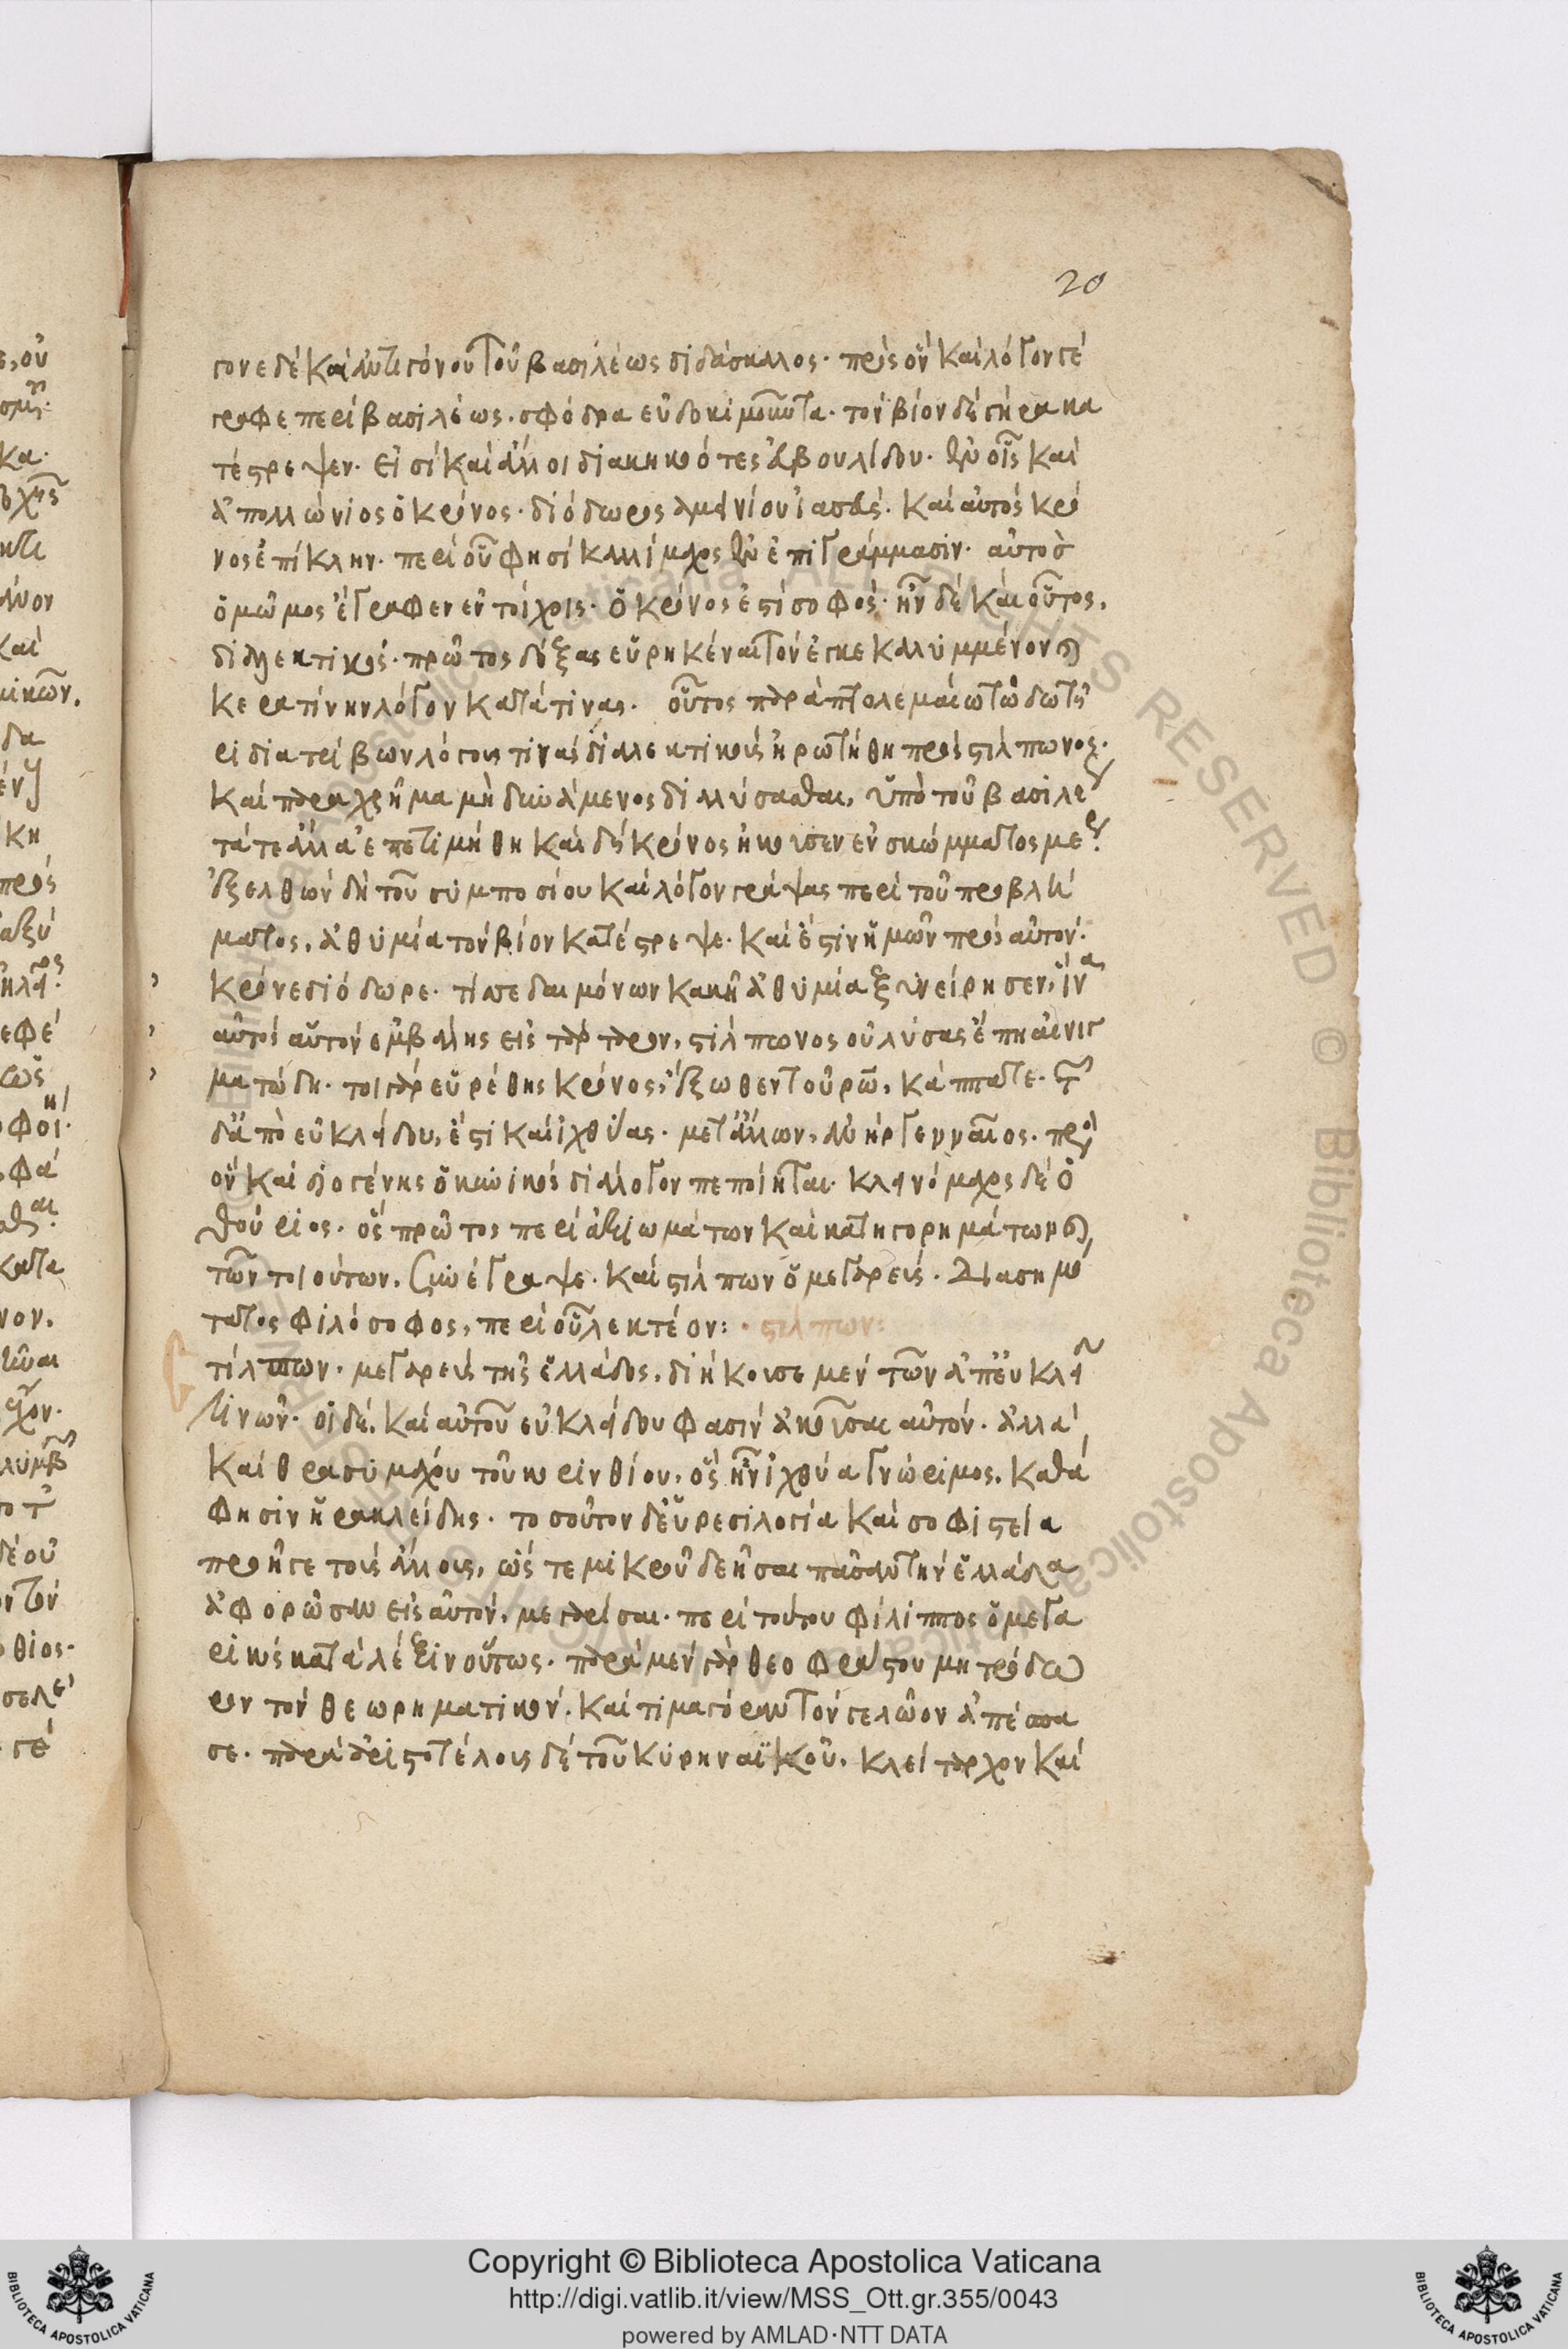 20
γονε δὲ καὶ ἀντιγόνου τοῦ βασιλέως διδάσκαλος· πρὸς ὃν καὶ λόγον γέ
γραφε περὶ βασιλέως. σφόδρα εὐδοκιμοῦντα· τὸν βίον δὲ γήρα κα
τέστρεψεν· εἰσὶ καὶ ἄλλοι διακηκοότες εὐβουλίδου· ἐν οἷς καὶ
ἀπολλώνιος ὁ κρόνος· διόδωρος ἀμεινίου ἰασεὺς. καὶ αὐτὸς κρό
νος ἐπίκλην· περὶ οὗ φησὶ καλλίμαχος ἐν ἐπιγράμμασιν· αὐτὸσ
ὁ μῶμος ἔγραφεν ἐν τοίχοις· ὁ κρόνος ἐστὶ σοφός· ἦν δὲ καὶ οὗτος,
διαλεκτικός· πρῶτος δόξας εὑρηκέναι τὸν ἐγκεκαλυμμένον καὶ
κερατίνην λόγον κατά τινας· οὗτος παρὰ πτολεμαίω τῶ σωτῆ
ρι διατρίβων λόγους τινὰς διαλεκτικοὺς ἠρωτήθη πρὸς στίλπωνος·
καὶ παραχρῆμα μὴ δυνάμενος διαλύσασθαι, ὑπὸ τοῦ βασιλέως
τά τε ἄλλα ἐπετιμήθη καὶ δὴ κρόνος ἤκουσεν ἐν σκώμματος μέρει·
ἐξελθὼν δὴ τοῦ συμποσίου καὶ λόγον γράψας περὶ τοῦ προβλή
ματος, ἀθυμία τὸν βίον κατέστρεψε· καὶ ἔστιν ἡμῶν πρὸς αὐτόν·
κρόνε διόδωρε· τίς σε δαιμόνων κακῆ ἀθυμία ξυνείρησεν, ἵνα
αὐτὸς αὑτὸν ἐμβάλης εἰς τάρταρον, στίλπωνος οὐ λύσας ἔπη αἰνιγ
ματώδη· τοιγὰρ εὑρέθης κρόνος, ἔξωθεν τοῦ ρῶ, κάππα τε· τῶν
δ' ἀπὸ εὐκλείδου, ἔστι καὶ ἰχθύας· μετάλλων, ἀνὴρ γενναῖος· πρὸς
ὃν καὶ διογένης ὁ κυνικὸς διάλογον πεποίηται· κλεινόμαχος δὲ ὁ
θούριος· ὃς πρῶτος περὶ ἀξιωμάτων καὶ κατηγορημάτων καὶ
τῶν τοιούτων, συνέγραψε· καὶ στίλπων ὁ μεγαρεὺς· διασημό
τατος φιλόσοφος, περὶ οὗ λεκτέον: · στίλπων:
τίλπων· μεγαρεὺς τῆς ἑλλάδος, διήκουσε μὲν τῶν ἀπ' εὐκλεί
δου τινῶν· οἱ δὲ, καὶ αὐτοῦ εὐκλείδου φασὶν ἀκοῦσαι αὐτόν· ἀλλὰ
καὶ θρασυμάχου τοῦ κορινθίου, ὃς ἦν ἰχθύα γνώριμος, καθά
φησιν ἡρακλείδης· τοσοῦτον δ' εὑρεσιλογία καὶ σοφιστεία
προῆγε τοὺς ἄλλους, ὥς τε μικροῦ δεῆσαι πᾶσαν τὴν ἑλλάδα
ἀφορῶσαν εἰς αὐτὸν, μεγαρίσαι· περὶ τούτου φίλιππος ὁ μεγα
ρικὸς κατὰ λέξιν οὕτως· παρὰ μὲν γὰρ θεοφράστου μητρόδω
ρον τὸν θεωρηματικόν· καὶ τιμαγόραν τὸν γελῶον ἀπέσπα
σε· παρὰ ἀριστοτέλους δὲ τοῦ κυρηναϊκοῦ, κλείταρχον καὶ
Copyright © Biblioteca Apostolica Vaticana
http://digi.vatlib.it/view/MSS_Ott.gr.355/0043
powered by AMLAD·NTT DATA